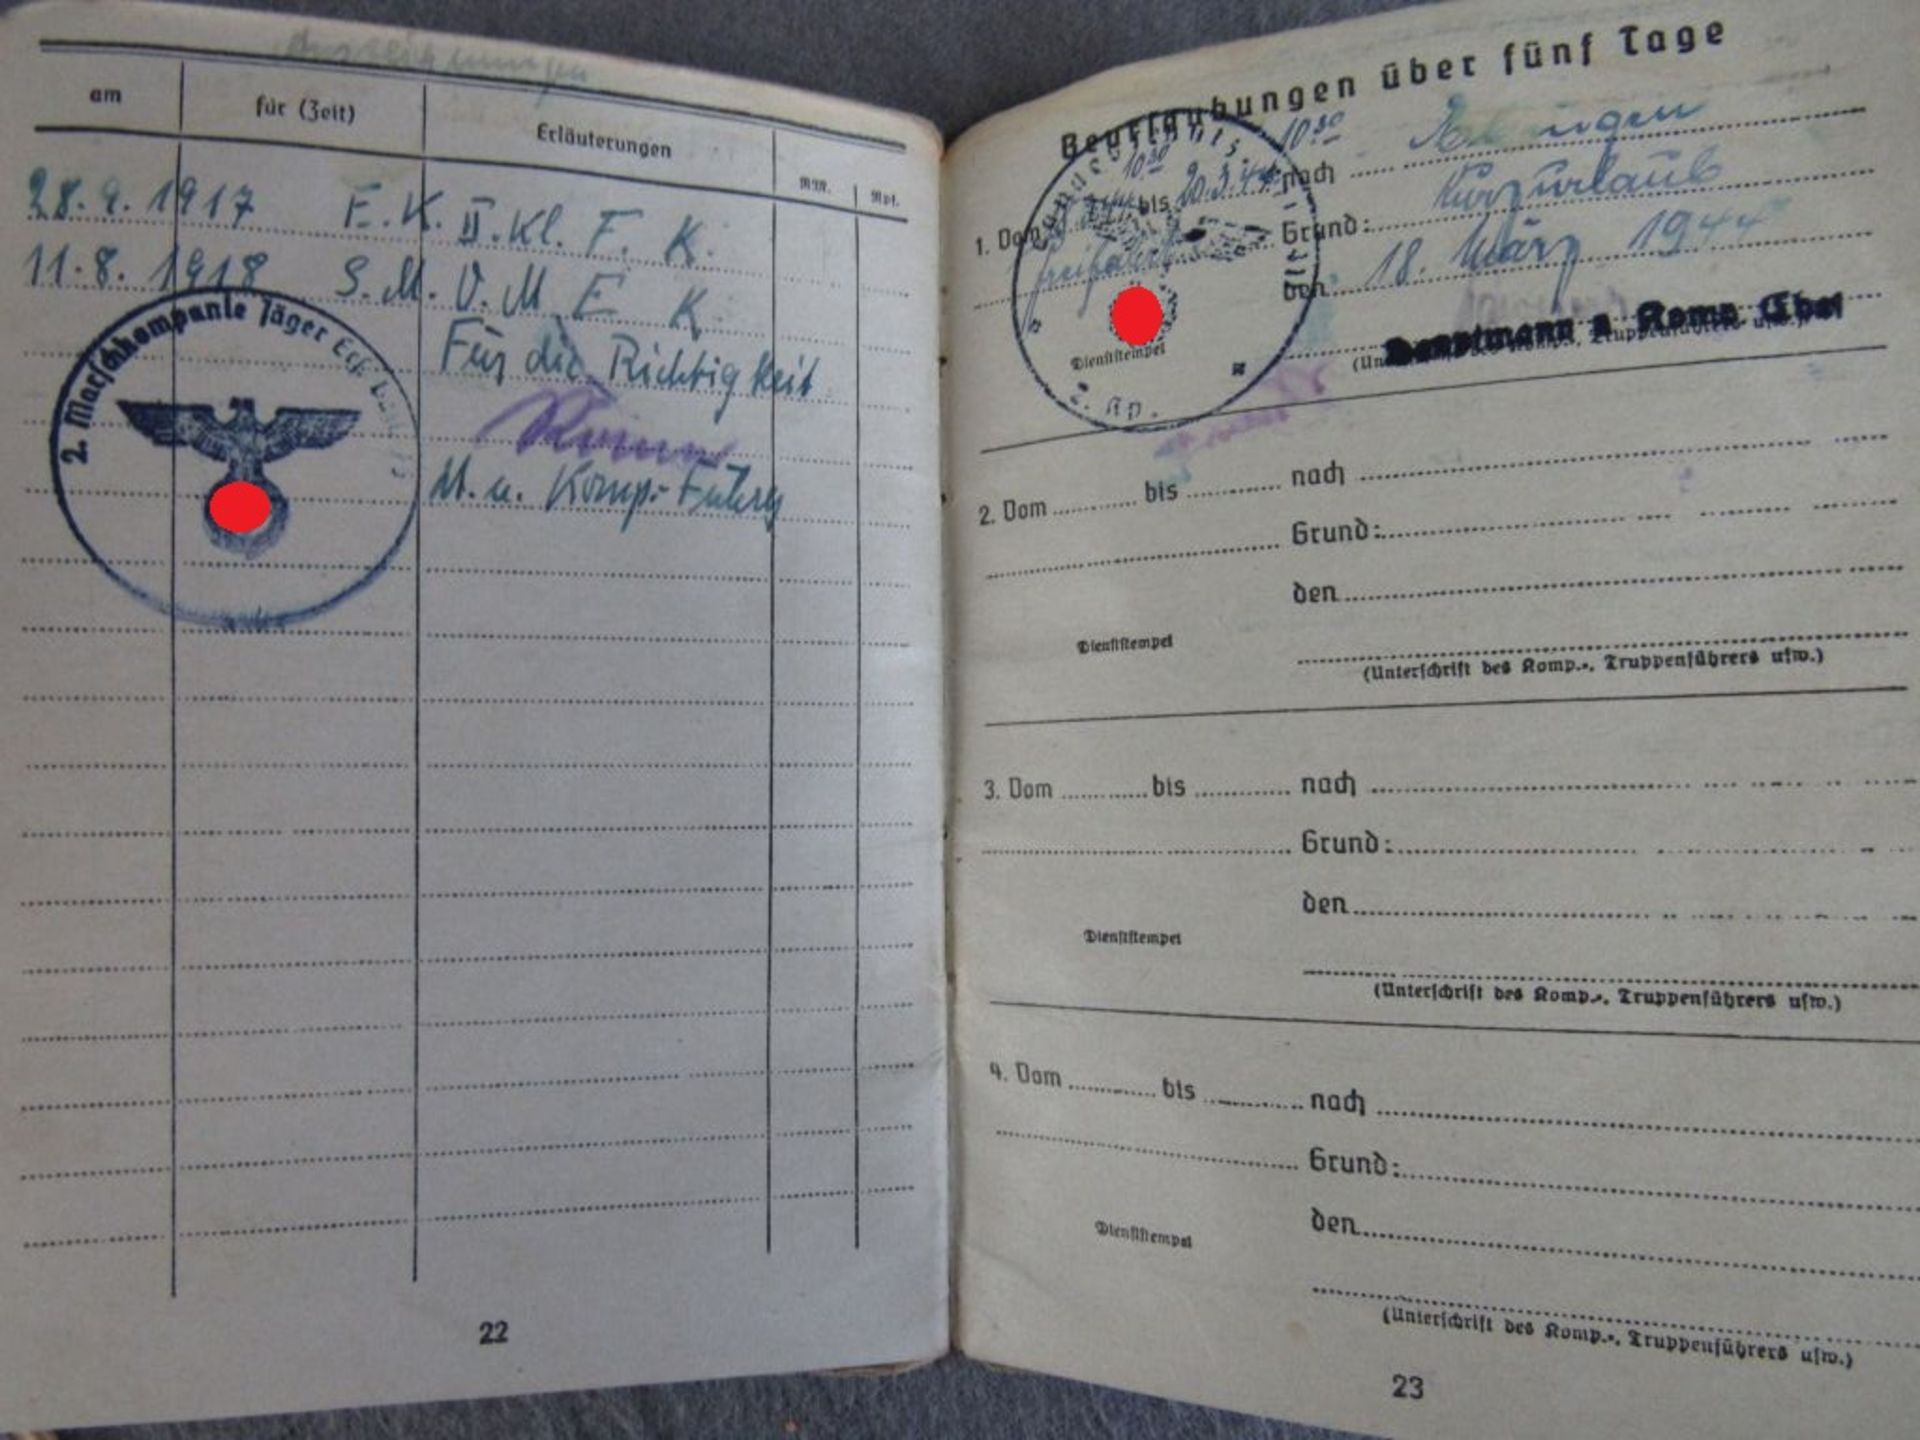 am für (Zeit) Erläuterungen
28. 9. 1917 E. K. II. Kl. F. K.
11. 8. 1918 S. M. V. M. E K
Für die Richtigkeit
2. Marschkompanie Jäger
M. u. Komp.-
22
Beurlaubungen über fünf Tage
10 30 10 30
1. Vom bis 20.3.44 nach
Grund: Kurzurlaub
den 18. März 1944
Hauptmann u. Komp.
Dienststempel
2. Kp.
2. Vom bis nach
Grund:
den
Dienststempel
(Unterschrift des Komp.-, Truppenführers usw.)
3. Vom bis nach
Grund:
den
Dienststempel
(Unterschrift des Komp.-, Truppenführers usw.)
4. Vom bis nach
Grund:
den
Dienststempel
(Unterschrift des Komp.-, Truppenführers usw.)
23